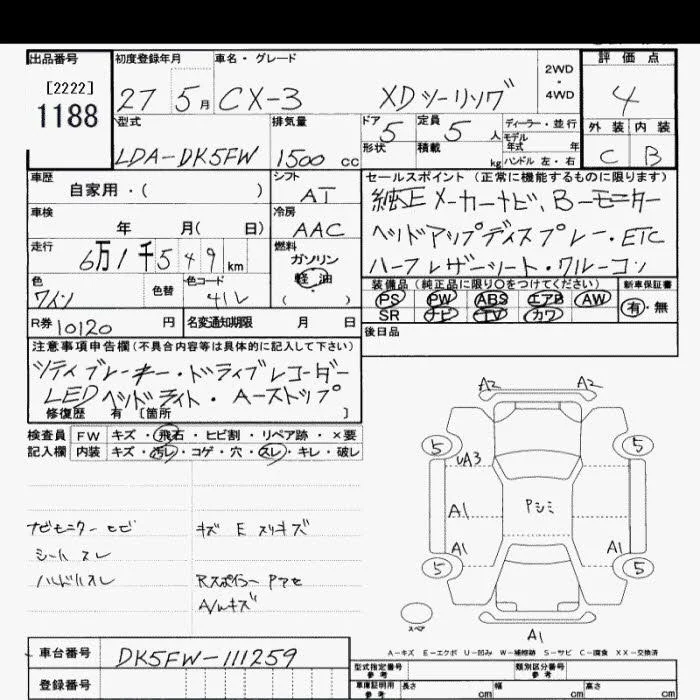 出品番号
[2222]
1188
初度登録年月
27 5月
車名・グレード
CX-3 XDツーリング
2WD
・
4WD
評価点
4
外装 内装
C B
型式
LDA-DK5FW
排気量
1500 cc
ドア 5
定員 5 人
形状
積載 kg
ディーラー・並行
モデル
年式 年
ハンドル 左・右
車歴
自家用・( )
シフト
AT
車検
年 月( 日)
冷房
AAC
走行
6万1千549 km
燃料
ガソリン
軽油
( )
色
ワイン
色替
色コード
41L
R券 10120 円
名変通知期限 月 日
セールスポイント (正常に機能するものに限ります)
純正メーカーナビ、Bーモニター
ヘッドアップディスプレー・ETC
ハーフレザーシート・クルーコン
装備品 (純正品に限り○をつけてください)
PS PW ABS エアB AW
SR ナビ TV カワ
新車保証書
有・無
後日品
注意事項申告欄 (不具合内容等は具体的に記入して下さい)
シティブレーキー・ドライブレコーダー
LEDヘッドライト・Aーストップ
修復歴 有 [箇所 ]
検査員 FW キズ・飛石・ヒビ割・リペア跡・×要
記入欄 内装 キズ・汚レ・コゲ・穴・スレ・キレ・破レ
ナビモニター ヒビ
シート スレ
ハンドルスレ
キズ E スリキズ
Rスポイラー
A/Wキズ
A2 A2
5 5
UA3
Pシミ
A1
A1 A1
5 5
スペア
A1
A-キズ E-エクボ U-凹み W-補修跡 S-サビ C-腐食 XX-交換済
車台番号
DK5FW-111259
登録番号
型式指定番号
参考
類別区分番号
参考
車庫証明用
参考
長さ cm
幅 cm
高さ cm